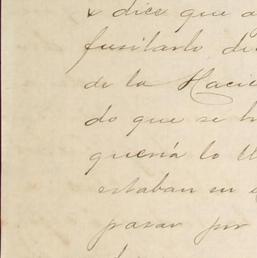 x dice que a
fusilarlo de
de la Hacie
do que se h
quería lo ll
estaban en
pasar por